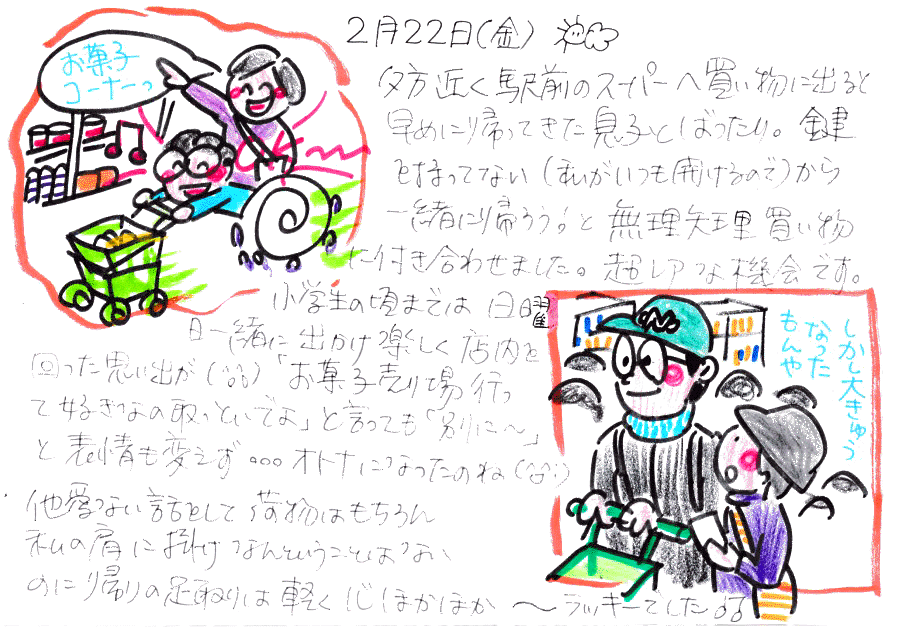 お菓子
コーナーっ
2月22日(金)
夕方近く駅前のスーパーへ買い物に出ると
早めに帰ってきた息子とばったり。鍵
を持ってない(私がいつも開けるので)から
一緒に帰ろう!と無理矢理買い物
に付き合わせました。超レアな機会です。
小学生の頃までは日曜
日一緒に出かけ楽しく店内を
回った思い出が
「お菓子売り場行っ
て好きなの取っといでよ」と言っても「別に〜」
と表情も変えず…オトナになったのね
他愛ない話をして荷物はもちろん
私の肩に掛け なんということはない
のに帰りの足取りは軽く心ほかほか 〜ラッキーでした
しかし大きゅう
なった
もんや